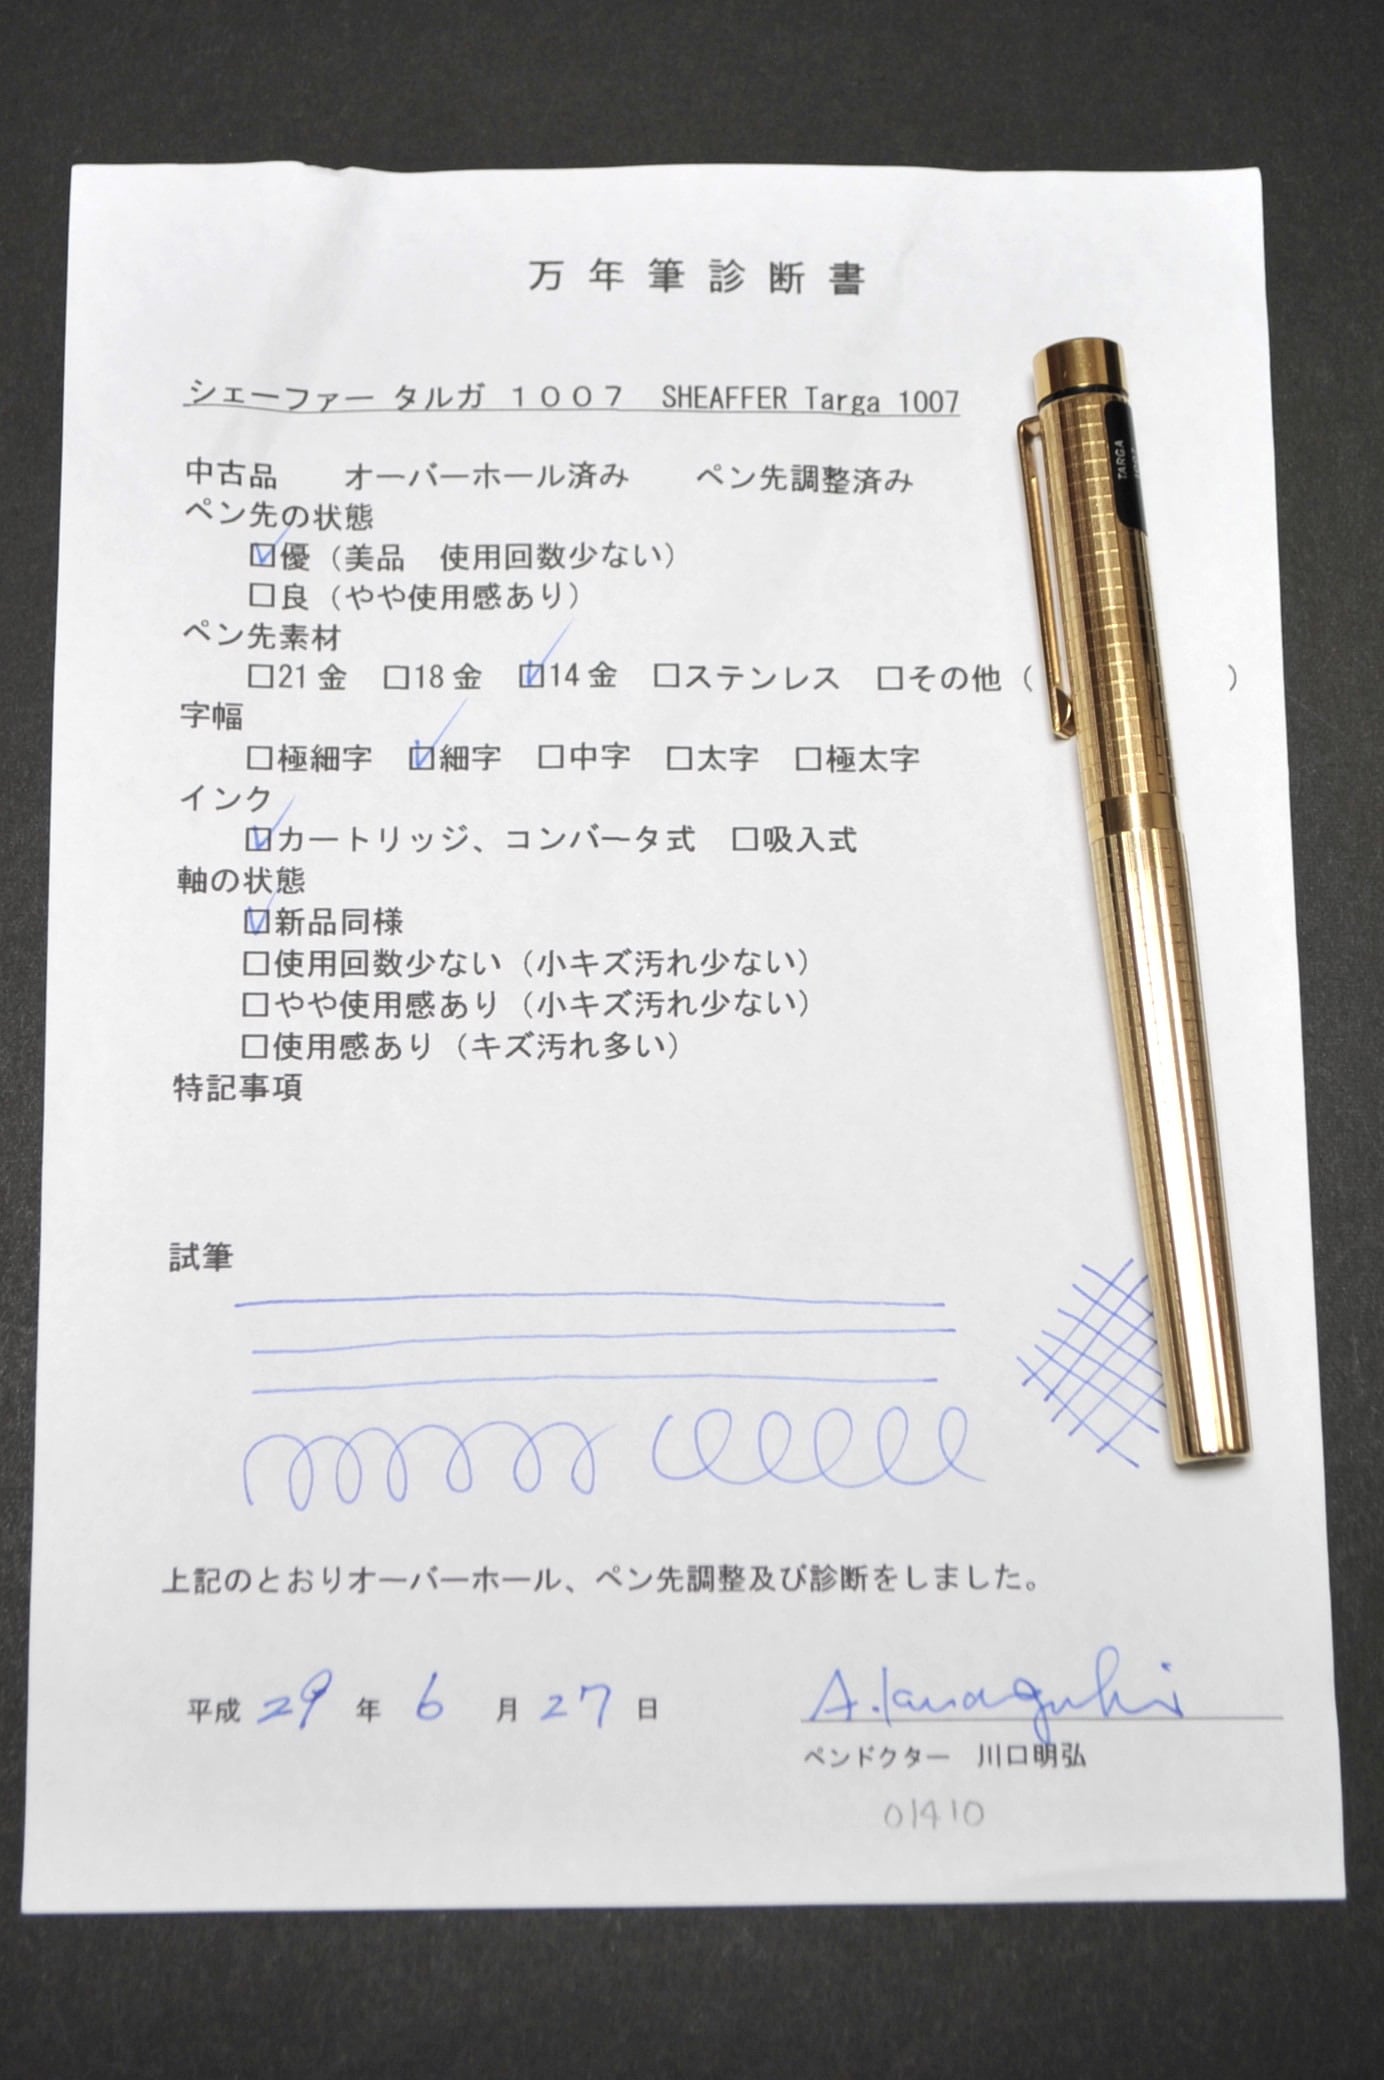 万年筆診断書
シェーファー タルガ １００７ SHEAFFER Targa 1007
中古品 オーバーホール済み ペン先調整済み
ペン先の状態
☑優（美品 使用回数少ない）
□良（やや使用感あり）
ペン先素材
□21金 □18金 ☑14金 □ステンレス □その他（ ）
字幅
□極細字 ☑細字 □中字 □太字 □極太字
インク
☑カートリッジ、コンバータ式 □吸入式
軸の状態
☑新品同様
□使用回数少ない（小キズ汚れ少ない）
□やや使用感あり（小キズ汚れ少ない）
□使用感あり（キズ汚れ多い）
特記事項
試筆
上記のとおりオーバーホール、ペン先調整及び診断をしました。
平成 29 年 6 月 27 日
A.Kawaguchi
ペンドクター 川口明弘
01410
TARGA